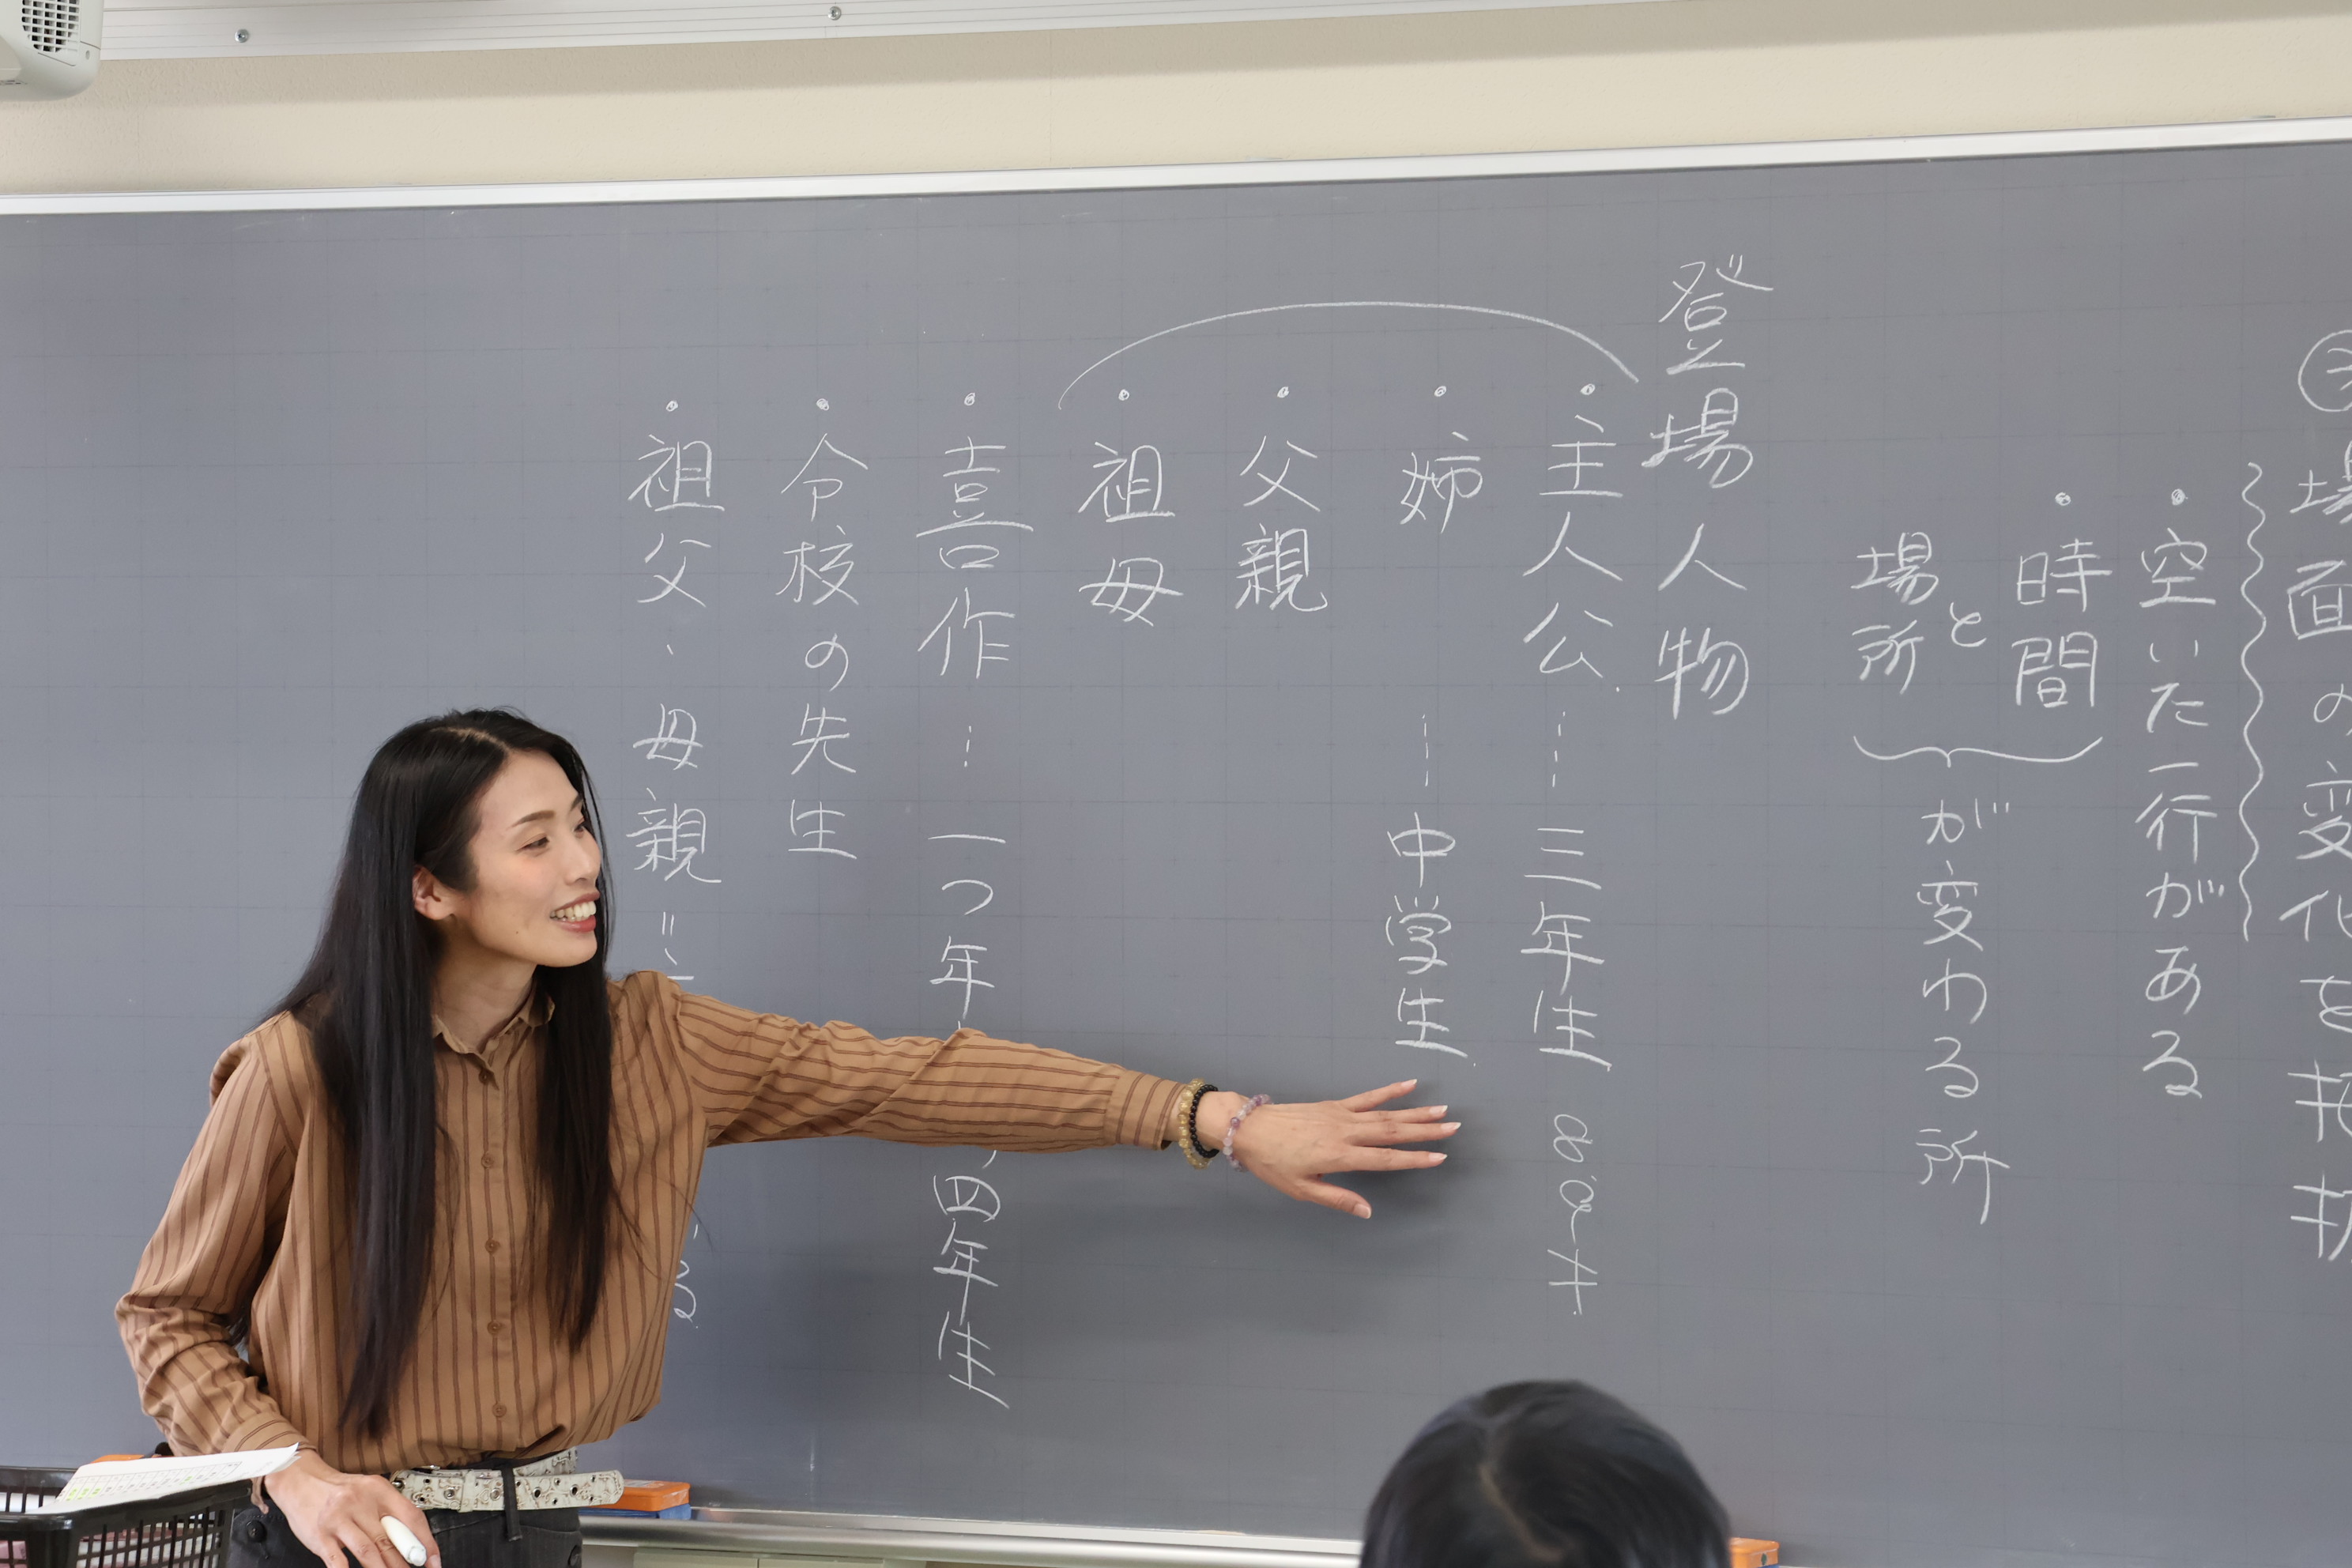 場面の変化を
・空いた一行がある
・時間と場所が変わる所
登場人物
・主人公……三年生 8、9才
・姉……中学生
・父親
・祖母
・喜作…一つ年 四年生
・分校の先生
・祖父、母親＝